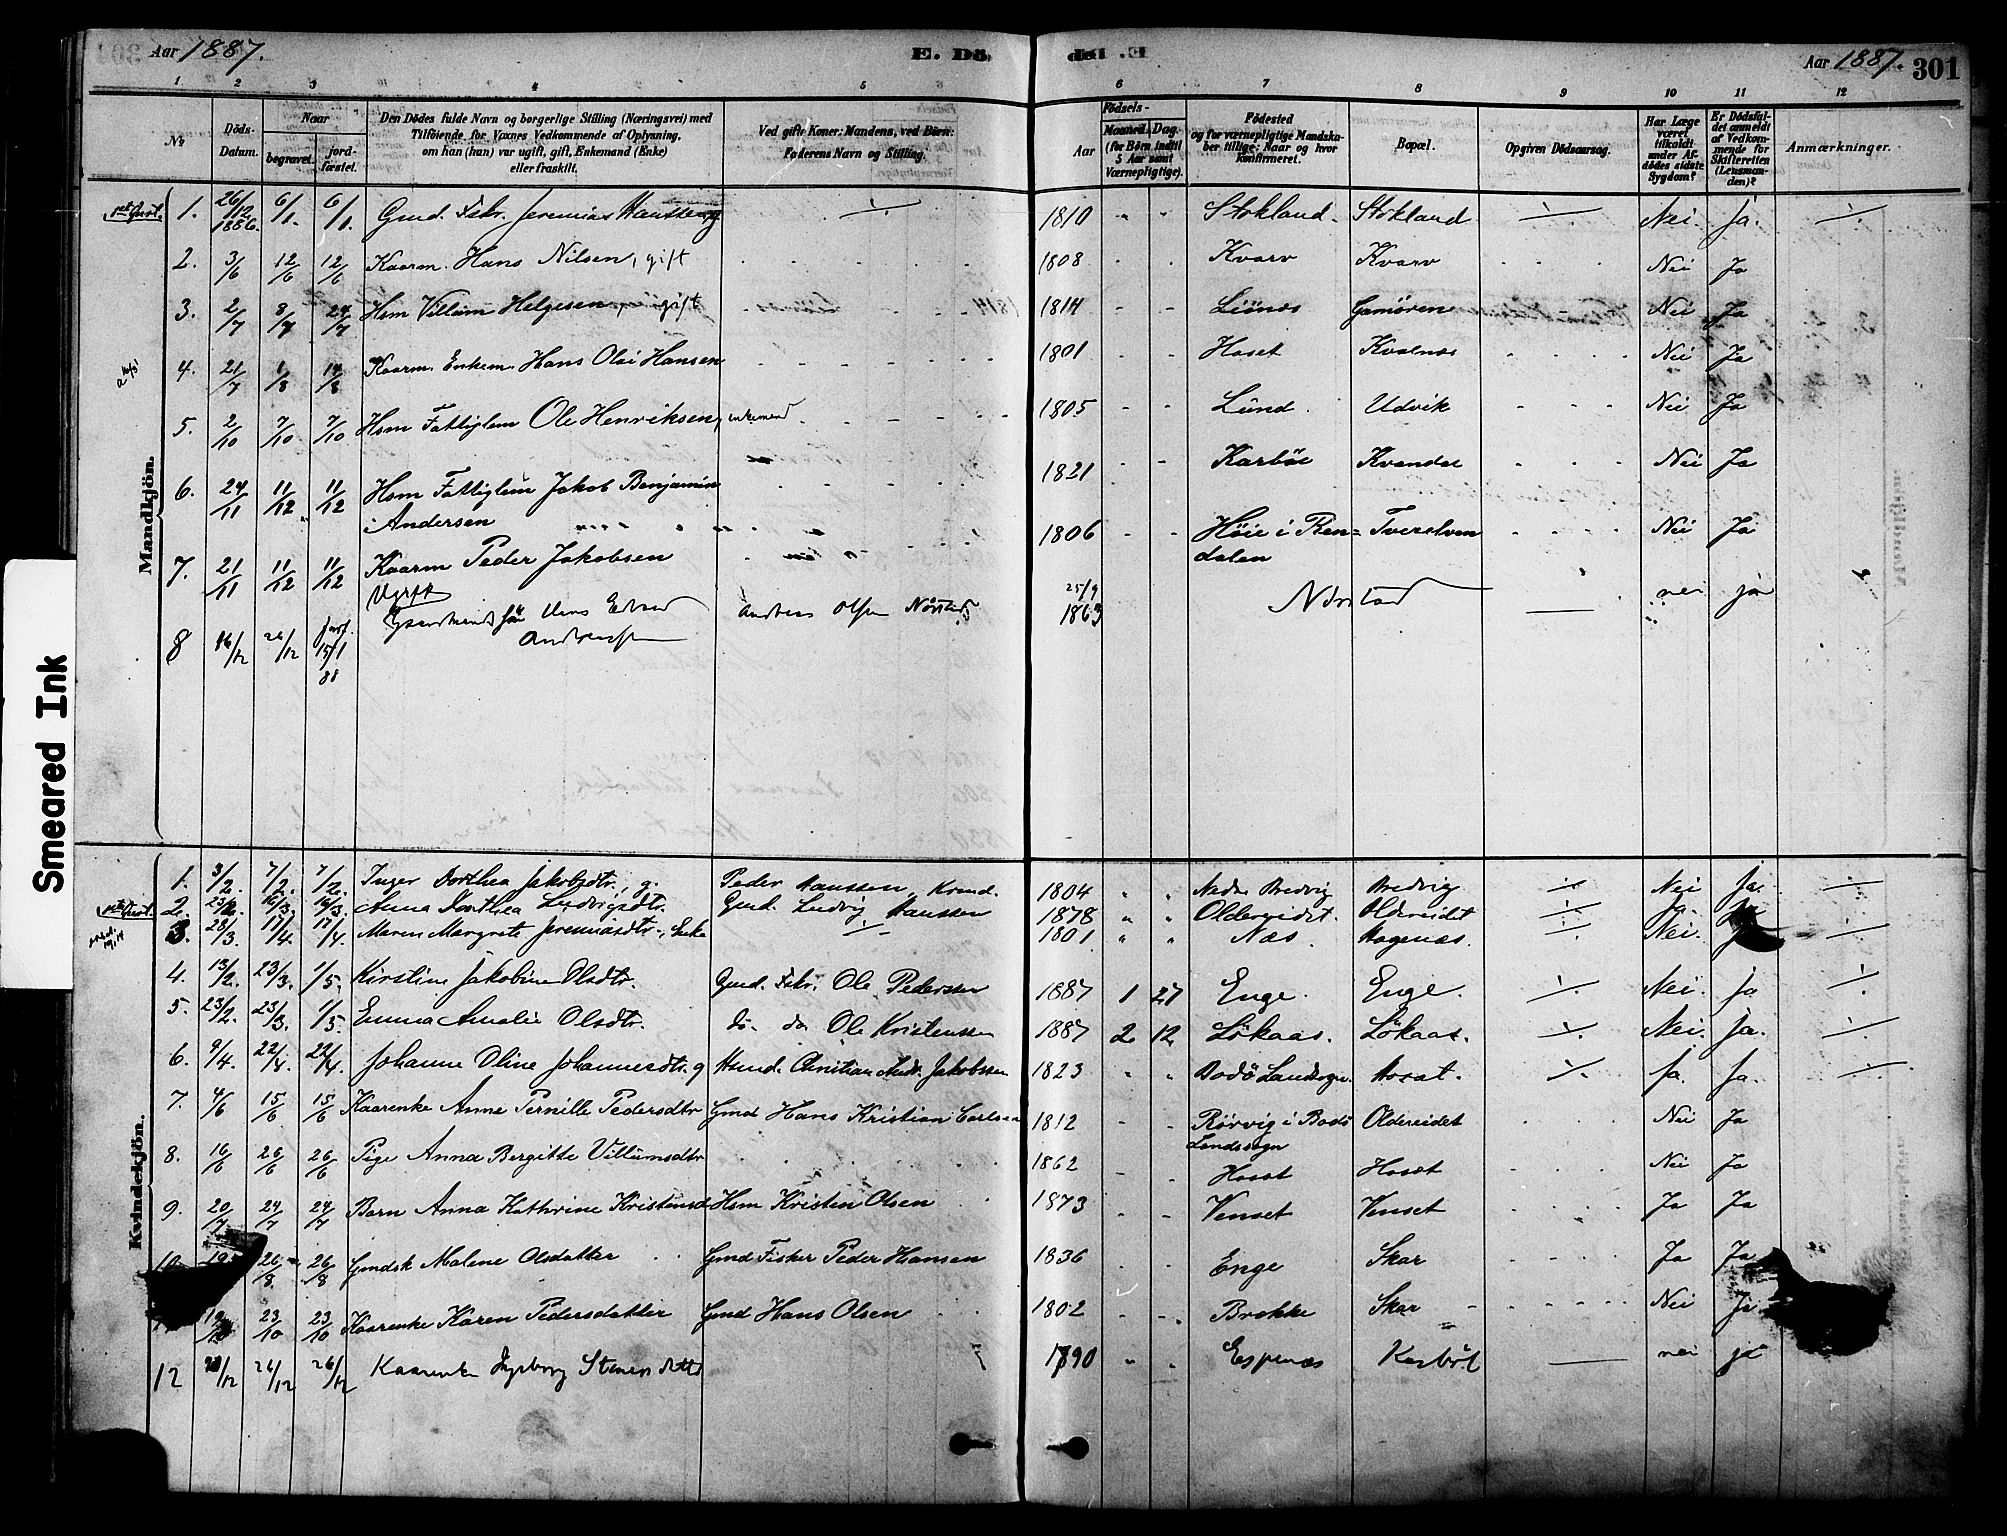 Aar 1887. E. Dö
del E. Aar 1887. 301
1 2 3 4 5 6 7 8 9 10 11 12
No Döds-Datum. Naar begravet. jordfæstet.
Den Dödes fulde Navn og borgerlige Stilling (Næringsvei) med
Tilföiende for Voxnes Vedkommende af Oplysning,
om han (hun) var ugift, gift, Enkemand (Enke)
eller fraskilt.
Ved gifte Koner: Mandens, ved Börn:
Faderens Navn og Stilling.
Födsels-
Aar Maaned. Dag.
(for Börn indtil
5 Aar samt
Værnepligtige).
Födested
og for værnepligtige Mandska-
ber tillige: Naar og hvor
konfirmeret.
Bopæl.
Opgiven Dödsaarsag.
Har Læge
været
tilkaldt
under Af-
dödes sidste
Sygdom?
Er Dödsfal-
det anmeldt
af Vedkom-
mende for
Skifteretten
(Lensman-
den)?
Anmærkninger.
Mandkjön.
1. 26/12 1886. 6/1. 6/1. Gmd. Fskr. Jeremias Hanssen 1810 " " Stokland. Stokland Nei. Ja.
2. 3/6 12/6 12/6 Kaarm. Hans Nilsen, gift 1808 Kvarv Kvarv Nei Ja
3. 2/7 8/7 24/7 Hsm Villum Helgesen, gift 1814 - - Liönes Gamören Nei Ja
4. 21/7 1/8 14/8 Kaarm. Enkem. Hans Olai Hansen 1801 Hoset Kvalnes Nei Ja
5. 2/10 7/10 7/10 Hsm Fattiglem Ole Henriksen, enkemand 1805 - - Lund. Udvik Nei Ja
6. 24/11 11/12 11/12 Hsm Fattiglem Jakob Benjamin
Andersen 1821 - - Karböl Kvandal Nei Ja
7. 21/11 11/12 11/12 Kaarm Peder Jakobsen 1806 - - Höie i Ren= Tverelven Nei Ja
dalen
Ugift
8 16/12 26/12 jorf. 15/1 88 Gaardmands sön Hans Edvard
Andreassen Andreas Olsen Nörstad 25/9 1863 Nörstad nei ja
Kvindekjön.
1. 3/2. 7/2. 7/2. Inger Dorthea Jakobsdtr., g. Peder Hanssen, Kmd. 1804 " " Nedre Bredvig Bredvig Nei Ja.
2. 23/2. 16/3. 16/3. Anna Dorthea Ludvigsdtr. Gmd. Ludvig Hanssen 1878 " " Oldereidet. Oldereidet Ja.
3. 28/3. 17/4. 17/4. Maren Margrete Jeremiasdtr., Enke 1801 " " Næs. Hagenæs. Nei.
4. 13/2. 23/3. 1/5. Kirstine Jakobine Olsdtr. Gmd. Fskr. Ole Pedersen 1887 1 27 Enge. Enge. Nei. Ja
5. 23/2. 23/3. 1/5. Emma Amalie Olsdtr. do. do Ole Kristenssen 1887 2 12 Lökaas. Lökaas. Nei. Ja.
6. 9/4. 22/4. 22/4. Johanne Oline Johannesdtr. g Hsmd. Christian Andr. Jakobssen 1823 " " Bodö Landsogn. Hosat. Ja. Ja.
7. 4/6 15/6 15/6 Kaarenke Anne Pernille Pedersdtr Gmd Hans Kristian Carlsen 1812 - - Rörvig i Bodö Oldereidet Nei Ja
Landsogn
8. 16/6 26/6 26/6 Pige Anna Bergitte Villumsdtr 1862 Hosat Hosat Nei Ja
9. 20/7 24/7 24/7 Barn Anna Kathrine Kristensd Hsm Kristen Olsen 1873 Venset Venset Ja Ja
26/8 26/8 Gmdsk Malene Olsdatter Gmd Fisker Peder Hansen 1836 Enge Skar Ja Ja
23/10 23/10 Kaarenke Karen Pedersdatter Gmd Hans Olsen 1802 Brekke Skar Nei Ja
12 26/12 26/12 Kaarenke Ingeborg Stenersdatter 1790 " " Espenæs Karböl nei ja
Smeared Ink